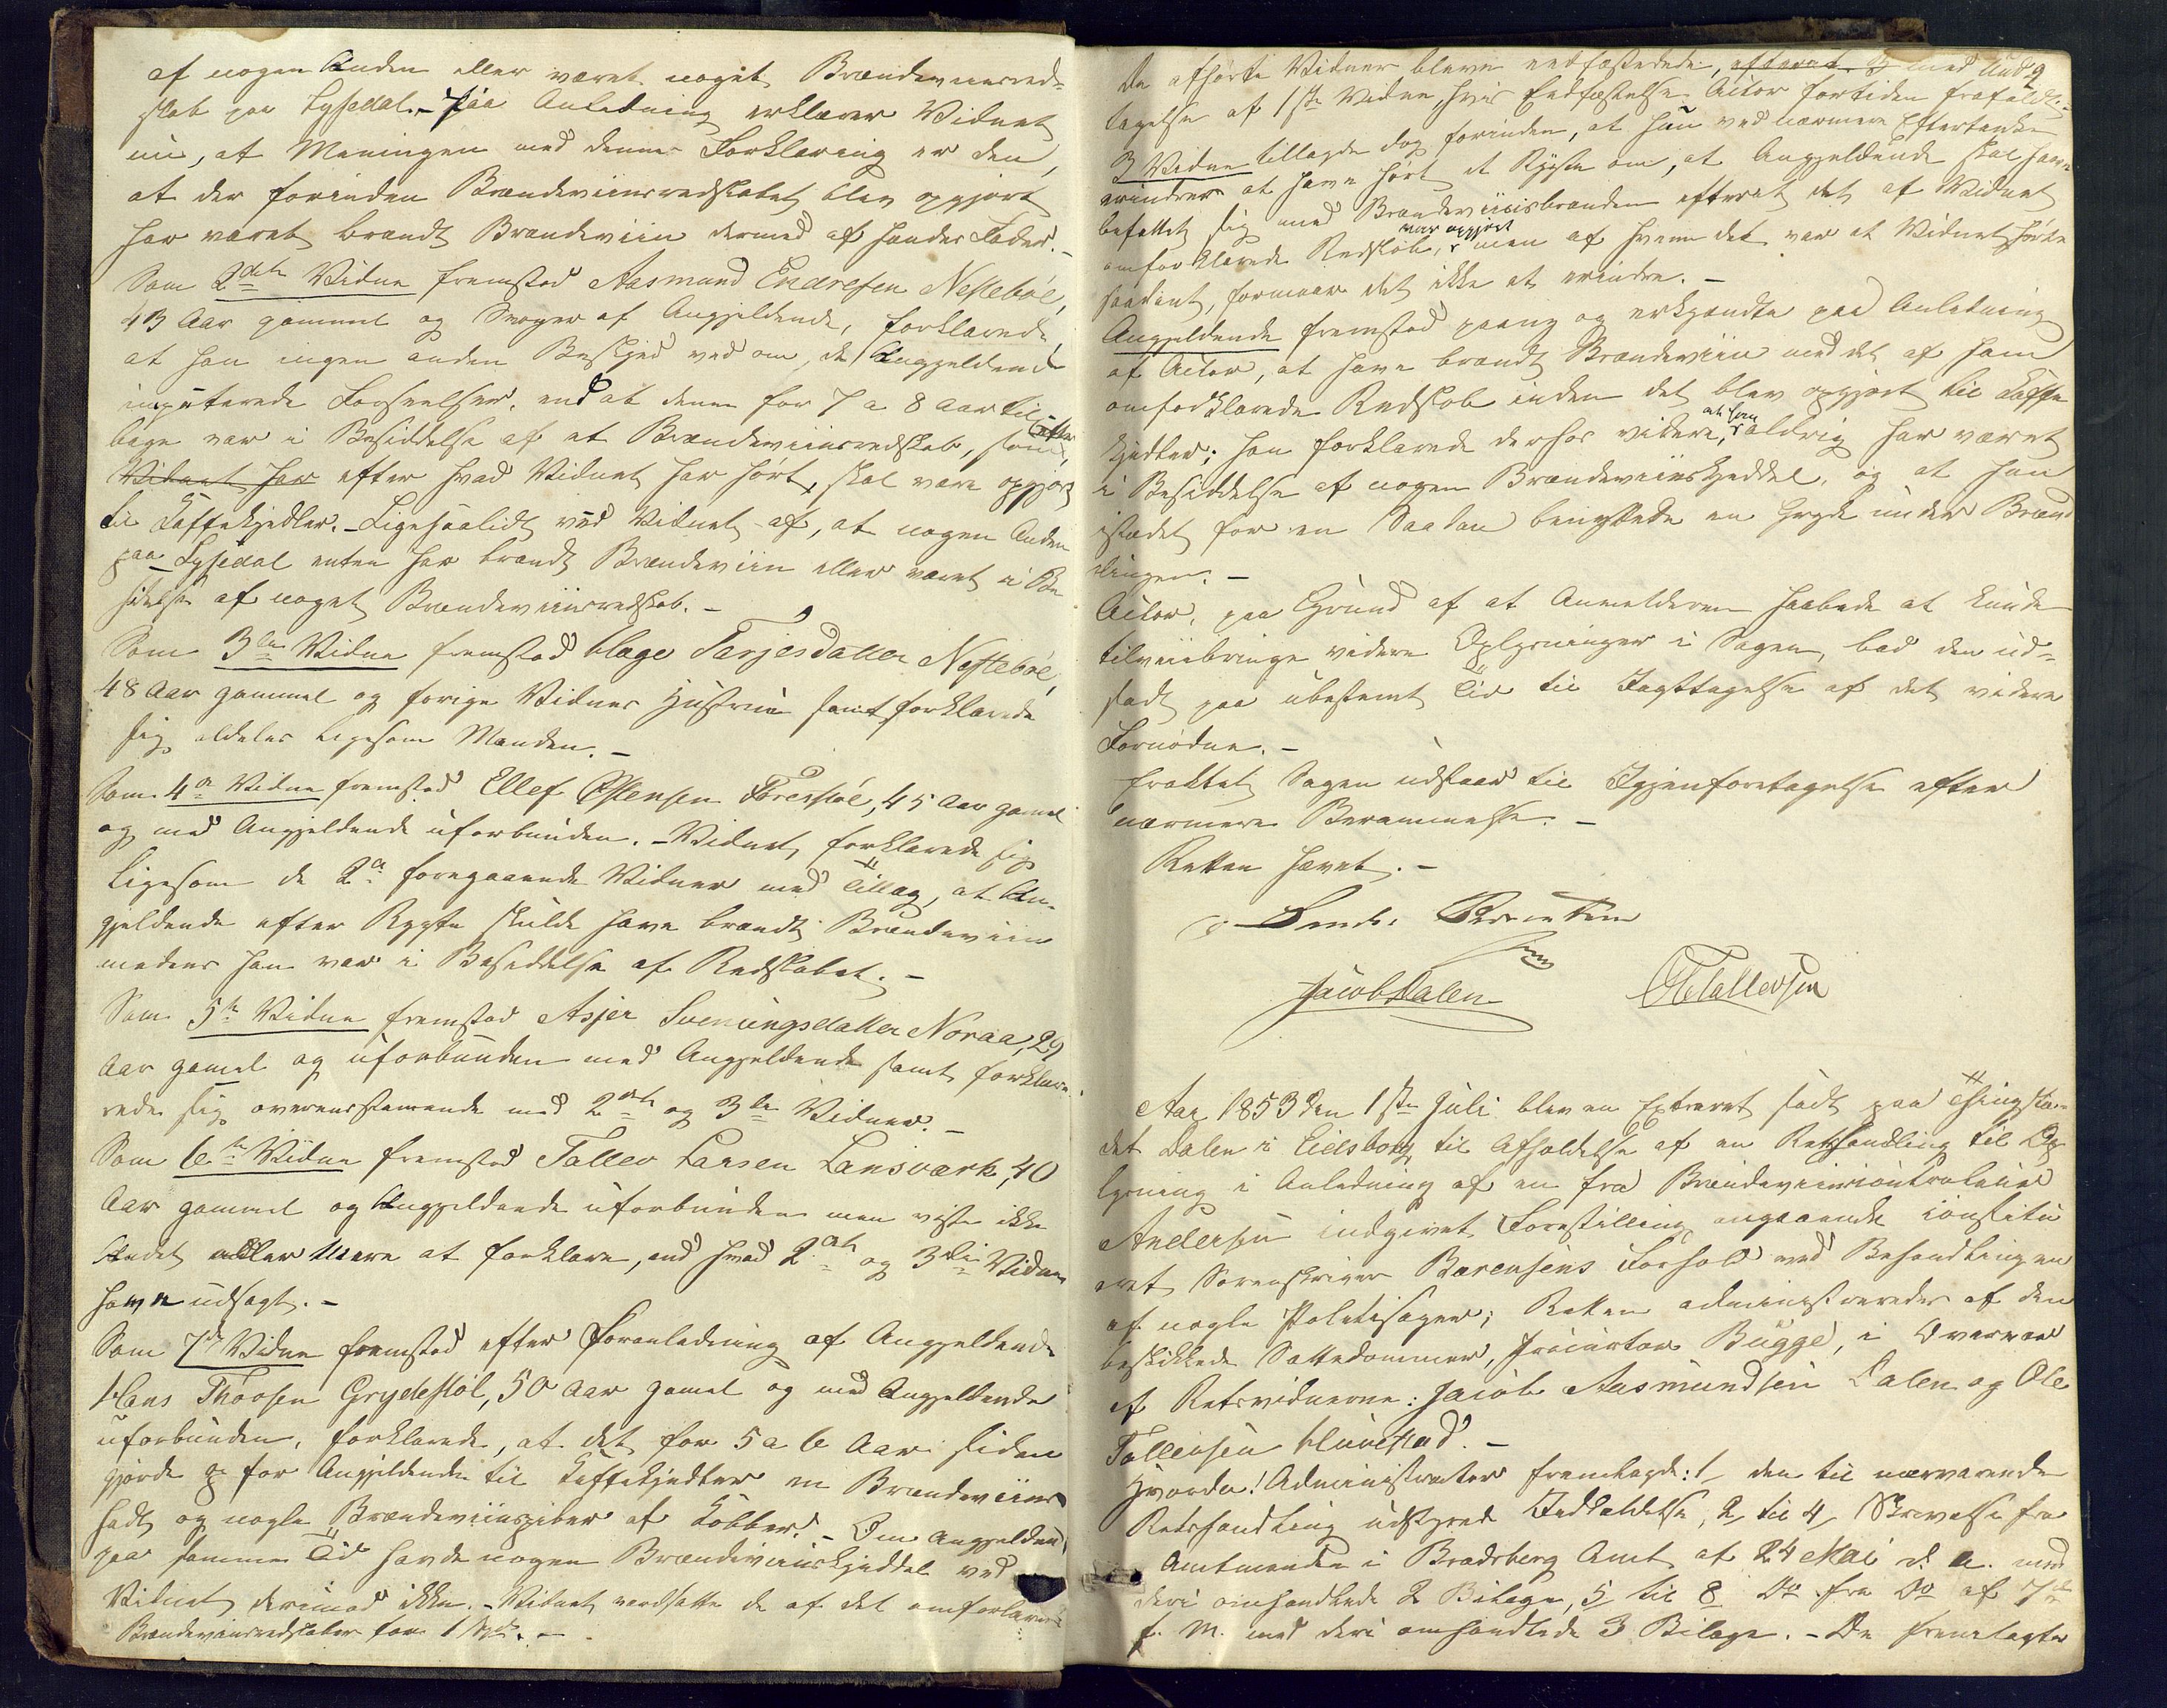 af nogen Anden eller været noget Brændeviinsred-
skab paa Lysedal. - Paa Anledning erklærer Vidnet
nu, at Meningen med denne Forklaring er den,
at der forinden Brændeviinsredskabet blev opgjort
har været brændt Brændeviin dermed af hendes Fader. -
Som 2det Vidne fremstod Aasmund Endresen Nestebøe,
43 Aar gammel og Svoger af Angjeldende, forklarede,
at han ingen anden Beskjed ved om, de Angjeldende
imputerede Forseelser, end at denne for 7 a 8 Aar til-
bage var i Besiddelse af et Brændeviinsredskab, som,
Vidnet har efter hvad Vidnet har hørt, skal være opgjort
til Kaffekjedler. - Ligesaalidt ved Vidnet af, at nogen Anden
paa Lysedal enten har brændt Brændeviin eller været i Be
sidelse af noget Brændeviinsredskab. -
Som 3die Vidne fremstod Aage Tarjesdatter Nestebøe,
48 Aar gammel og forrige Vidnes Hustrue samt forklarede
sig aldeles ligesom Manden. -
Som 4de Vidne fremstod Ellef Østensen 45 Aar gamel
og med Angjeldende uforbunden. - Vidnet forklarede sig
ligesom de 2de foregaaende Vidner med Tillæg, at An-
gjeldende efter Rygte skulde have brændt Brændeviin
medens han var i Besiddelse af Redskabet. -
Som 5te Vidne fremstod Asjer Sveinungsdatter Noraa, 29
Aar gamel og uforbunden med Angjeldende samt forkla-
rede sig overensstemmende med 2det og 3die Vidner. -
Som 6te Vidne fremstod Tallev Larsen Lansværk, 40
Aar gammel og Angjeldende uforbunden men viste ikke
Andet eller Mere at forklare, end hvad 2det og 3die Vidne
have udsagt. -
Som 7de Vidne fremstod efter Foranledning af Angjeldende
Hans Thorsen Grydestøl, 50 Aar gamel og med Angjeldende
uforbunden, forklarede, at det for 5 a 6 Aar siden
gjorde op for Angjeldende til Kaffekjedler en Brændeviins
hadt og nogle Brændeviinspiber af Kobber. - Om Angjeldende
paa samme Tid havde nogen Brændeviinskjeddel ved
Vidnet derimod ikke. - Vidnet værdsatte de af det omforklarede
Brændeviinsredskaber for 1 -
De afhørte Vidner bleve edfæstede, efterat med Und 9
tagelse af 1ste Vidne, hvis Edfæstelse Actor fortiden frafaldt. -
3 Vidne tillagde dog forinden, at hun ved nærmere Eftertanke
erindrer at have hørt et Rygte om, at Angjeldende skal have
befattet sig med Brændeviinsbrænden efterat det af Vidnet
omforklarede Redskab, var opgjort men af hvem det var at Vidnet hørte
saadant, formaar det ikke at erindre. -
Angjeldende fremstod paany og erkjendte paa Anledning
af Actor, at have brændt Brændeviin med det af ham
omforklarede Redskab inden det blev opgjort til Kaffe
kjedler; han forklarede derhos videre, at han aldrig har været
i Besiddelse af nogen Brændeviinskjeddel, og at han
istedet for en Saadan benyttede en Gryde under Brænd
ingen. -
Actor, paa Grund af at Anmelderen haabede at kunde
tilveiebringe videre Oplysninger i Sagen, bad den ud-
sadt paa ubestemt Tid til Iagttagelse af det videre
Fornødne. -
Eraktet Sagen udstaar til Igjenforetagelse efter
nærmere Berammelse. -
Retten hævet. -
Jacob Dalen OTallevsen
Aar 1853 den 1ste Juli blev en Extraret sadt paa Thingste-
det Dalen i Eidsborg til Afholdelse af en Retshandling til Op
lysning i Anledning af en fra Brændeviinscontroleur
Andersen indgivet Forestilling angaaende constitu
eret Sorenskriver Barensens Forhold ved Behandlingen
af nogle Politisager; Retten administreredes af den
beskikkede Sættedommer, Procurator Bugge, i Overvær
af Retsvidnerne: Jacob Aasmundsen Dalen og Ole
Tallevsen -
Hvorda! Administrator fremlagde: 1, den til nærværende
Retshandling udstedte Indkaldelse, 2, til 4, Skrivelse fra
Amtmanden i Bradsberg Amt af 24 Mai d. A. med
deri omhandlede 2 Bilage, 5 til 8 Do fra Do af 7de
f. M. med deri omhandlede 3 Bilage. - De fremlagte